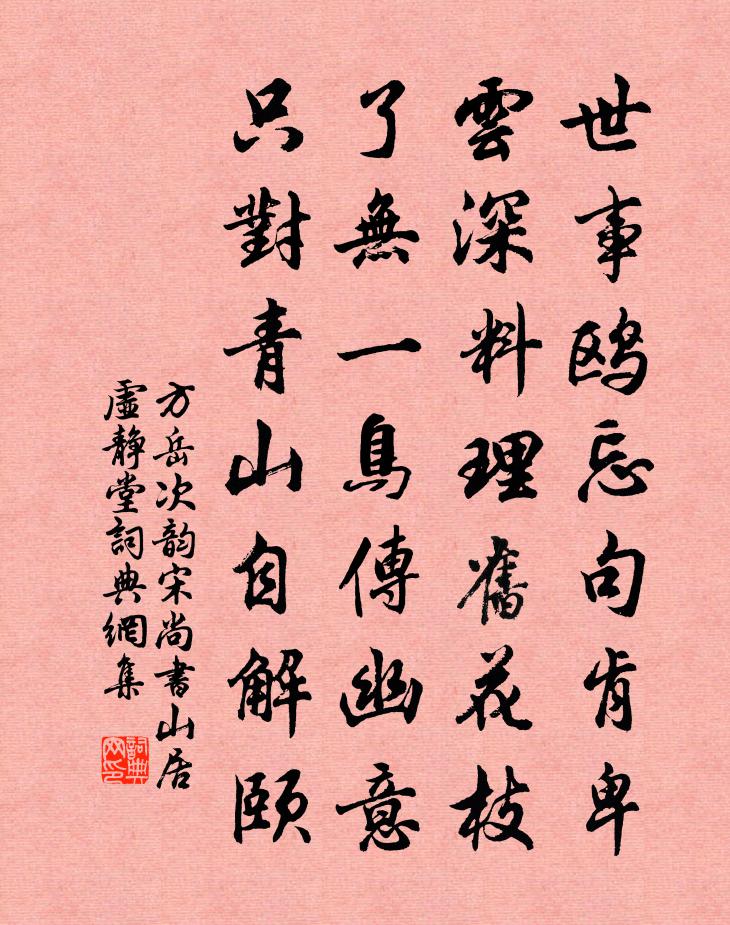 世事鸥忘句肯卑
雲深料理舊花枝
了無一鳥傳幽意
只對青山自解頤
方岳次韵宋尚書山居
虛靜堂詞典網集
詞典网印